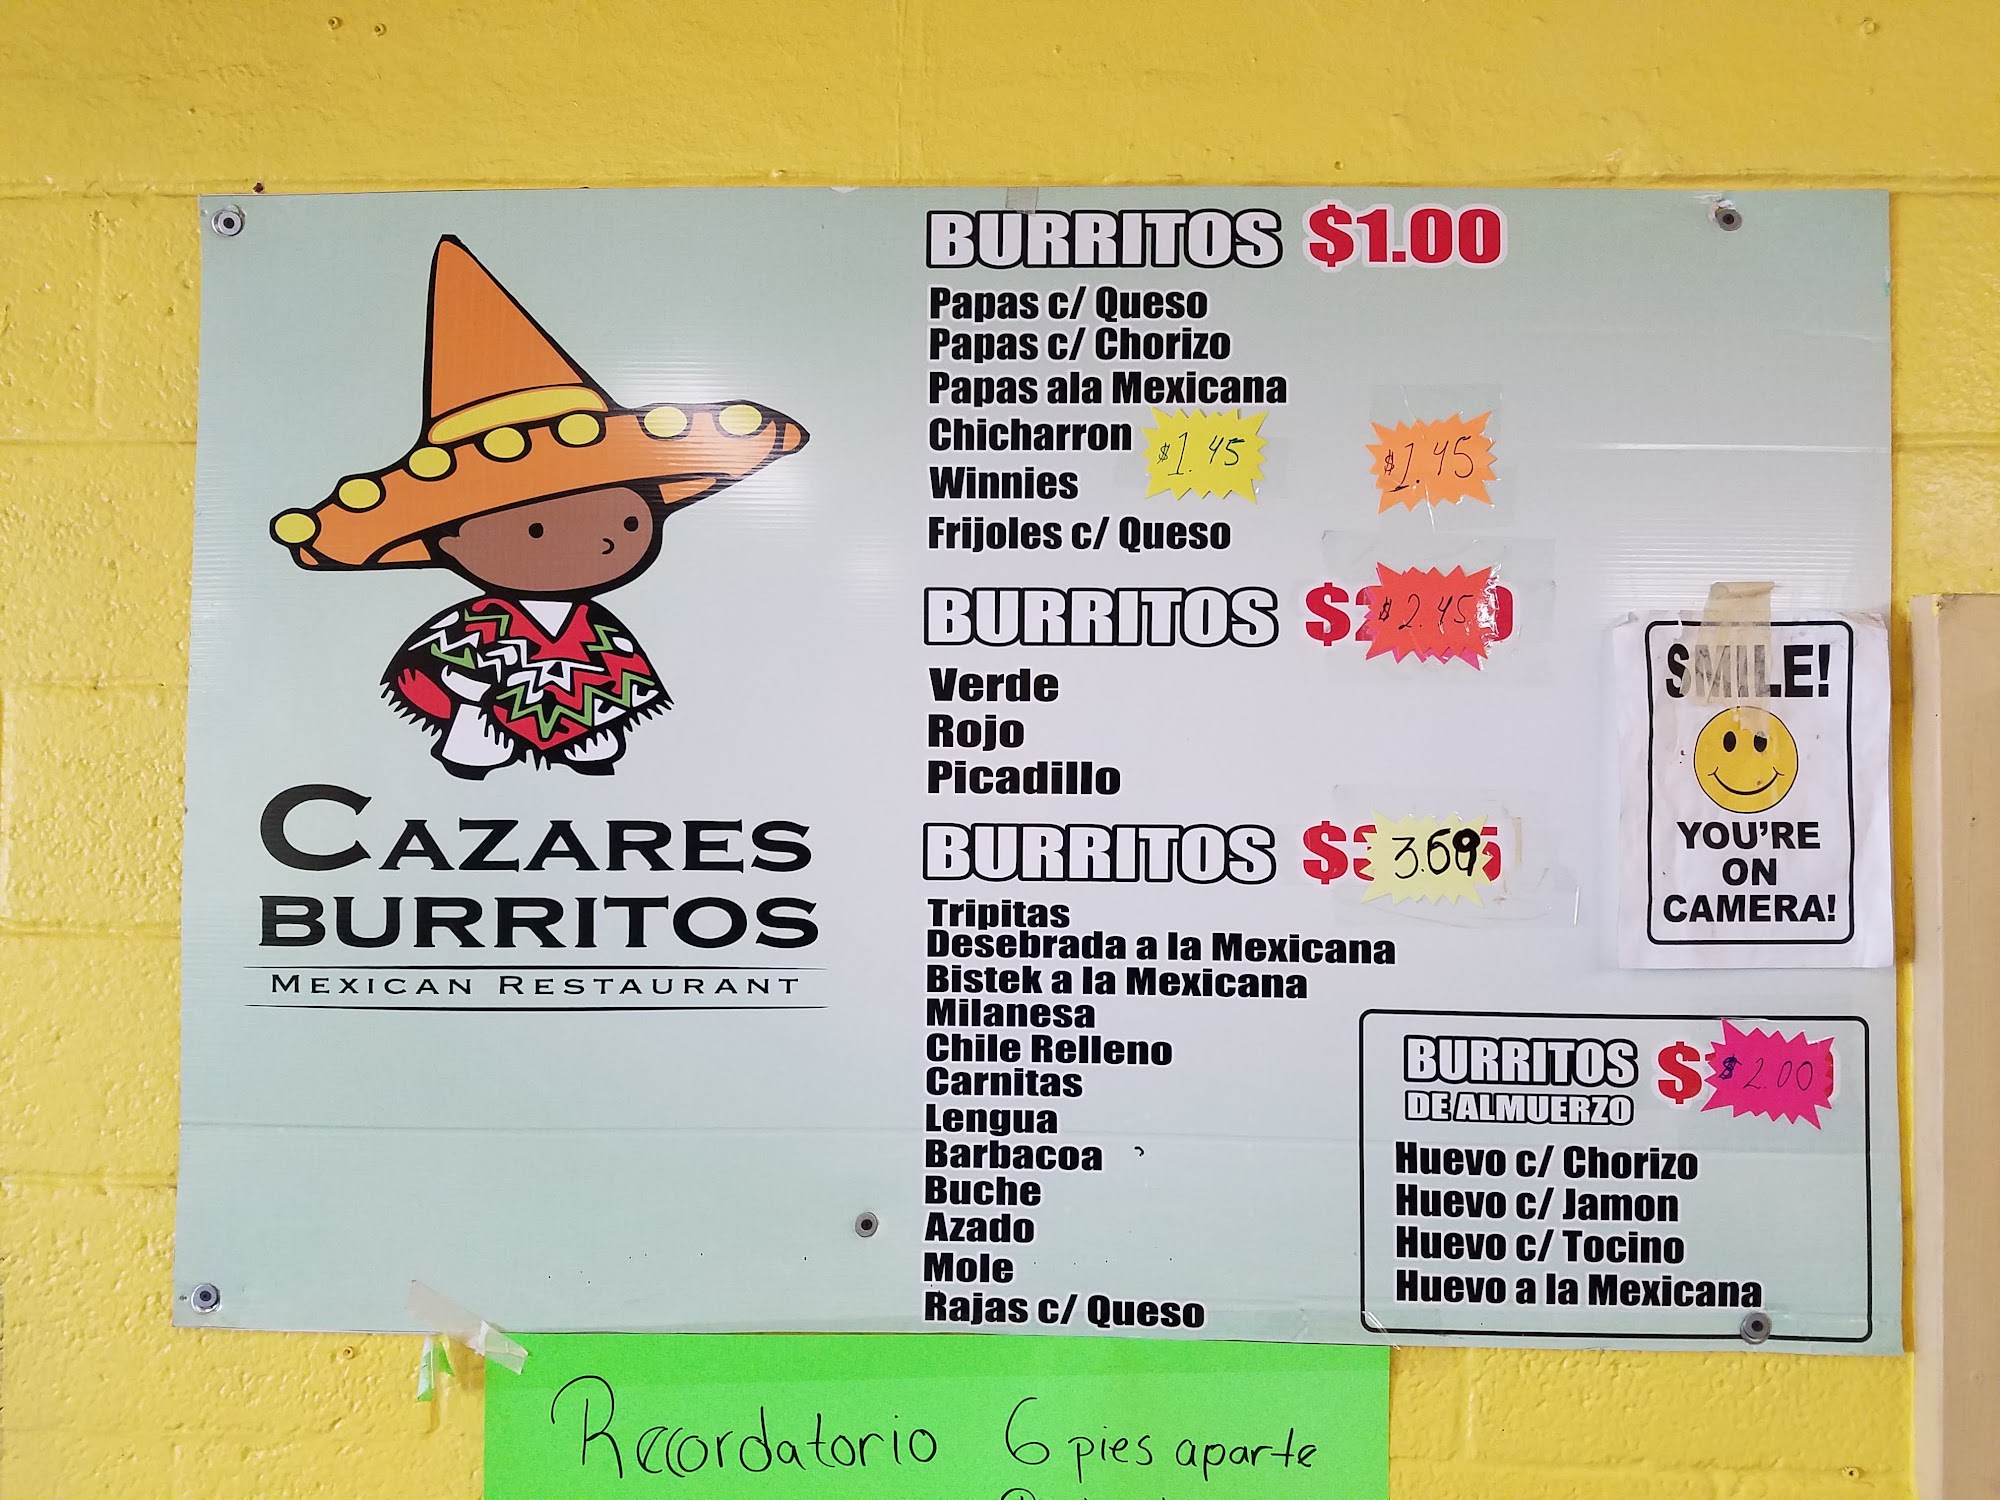 CAZARES
BURRITOS
MEXICAN RESTAURANT
BURRITOS $1.00
Papas c/ Queso
Papas c/ Chorizo
Papas ala Mexicana
Chicharron $1.45 $1.45
Winnies
Frijoles c/ Queso
BURRITOS $ $2.45
Verde
Rojo
Picadillo
BURRITOS $ 3.69
Tripitas
Desebrada a la Mexicana
Bistek a la Mexicana
Milanesa
Chile Relleno
Carnitas
Lengua
Barbacoa
Buche
Azado
Mole
Rajas c/ Queso
SMILE!
YOU'RE
ON
CAMERA!
BURRITOS $ $2.00
DE ALMUERZO
Huevo c/ Chorizo
Huevo c/ Jamon
Huevo c/ Tocino
Huevo a la Mexicana
Recordatorio 6 pies aparte